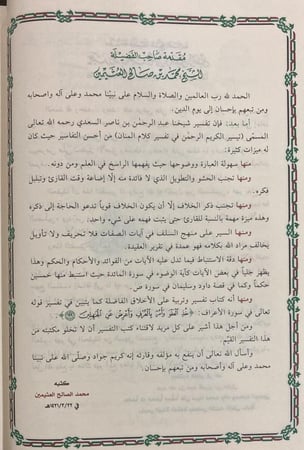 مقدمة صاحب الفضيلة
الشيخ محمد بن صالح العثيمين
الحمد لله رب العالمين والصلاة والسلام على نبينا محمد وعلى آله وأصحابه
ومن تبعهم بإحسان إلى يوم الدين.
أما بعد: فإن تفسير شيخنا عبد الرحمن بن ناصر السعدي رحمه الله
المسمى (تيسير الكريم الرحمن في تفسير كلام المنان) من أحسن التفاسير حيث كان
له ميزات كثيرة:
منها سهولة العبارة ووضوحها حيث يفهمها الراسخ في العلم ومن دونه.
ومنها تجنب الحشو والتطويل الذي لا فائدة منه إلا إضاعة وقت القارئ وتبلبل
فكره.
ومنها تجنب ذكر الخلاف إلا أن يكون الخلاف قوياً تدعو الحاجة إلى ذكره
وهذه ميزة مهمة بالنسبة للقارئ حتى يثبت فهمه على شيء واحد.
ومنها السير على منهج السلف في آيات الصفات فلا تحريف ولا تأويل
يخالف مراد الله بكلامه فهو عمدة في تقرير العقيدة.
ومنها دقة الاستنباط فيما تدل عليه الآيات من الفوائد والأحكام والحكم وهذا
يظهر جلياً في بعض الآيات كآية الوضوء في سورة المائدة حيث استنبط منها خمسين
حكماً وكما في قصة داود وسليمان في سورة ص.
ومنها أنه كتاب تفسير وتربية على الأخلاق الفاضلة كما يتبين في تفسير قوله
تعالى في سورة الأعراف: ﴿خُذِ الْعَفْوَ وَأْمُرْ بِالْعُرْفِ وَأَعْرِضْ عَنِ الْجَاهِلِينَ﴾.
ومن أجل هذا أشير على كل مريد لاقتناء كتب التفسير أن لا تخلو مكتبته من
هذا التفسير القيم.
وأسأل الله تعالى أن ينفع به مؤلفه وقارئه إنه كريم جواد وصلى الله على نبينا
محمد وعلى آله وأصحابه ومن تبعهم بإحسان.
كتبه
محمد الصالح العثيمين